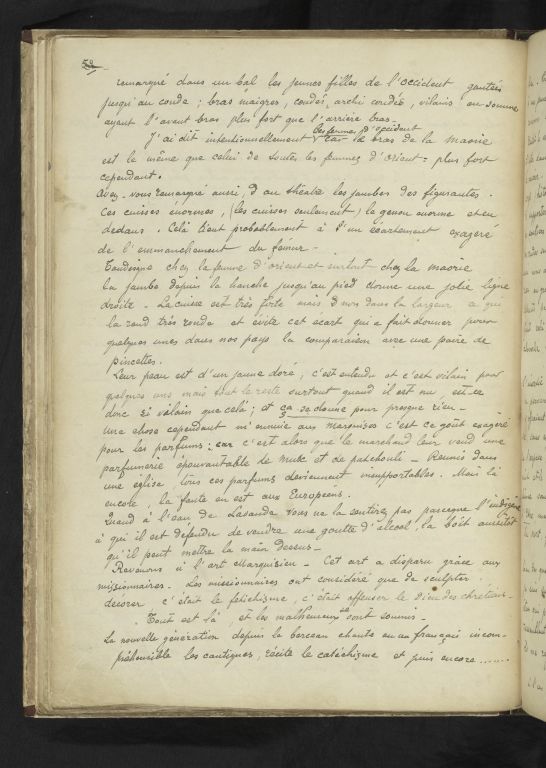 52
remarqué dans un bal les jeunes filles de l'occident gantées
jusqu'au coude ; bras maigres, coudés, archi coudés, vilains en somme
ayant l'avant bras plus fort que l'arrière bras.
les femmes d'occident
J'ai dit intentionnellement car le bras de la maorie
est le même que celui de toutes les femmes d'orient = plus fort
cependant.
Avez-vous remarqué aussi, au théâtre les jambes des figurantes.
Ces cuisses énormes, (les cuisses seulement) le genou enorme et en
dedans. Celà tient probablement à un écartement exageré
de l'emmanchement du fémur -
Tandisque chez la femme d'orient et surtout chez la maorie
la jambe depuis la hanche jusqu'au pied donne une jolie ligne
droite - La cuisse est très forte mais non dans la largeur ce qui
la rend très ronde et évite cet ecart qui a fait donner pour
quelques unes dans nos pays la comparaison avec une paire de
pincettes.
Leur peau est d'un jaune doré, c'est entendu et c'est vilain pour
quelques uns mais tout le reste surtout quand il est nu, est-ce
donc si vilain que celà ; et ça se donne pour presque rien -
Une chose cependant m'ennuie aux marquises c'est ce goût exagéré
pour les parfums : car c'est alors que le marchand leur vend une
parfumerie épouvantable de musc et de patchouli - Réunis dans
une église, tous ces parfums deviennent insupportables. Mais là
encore, la faute en est aux Européens.
Quand à l'eau de Lavande vous ne la sentirez pas parceque l'indigène
à qui il est défendu de vendre une goutte d'alcool, la boit aussitôt
qu'il peut mettre la main dessus -
Revenons à l'art marquisien - Cet art a disparu grâce aux
missionnaires. Les missionnaires ont considéré que de sculpter
décorer, c'était le fétichisme, c'était offenser le Dieu des chrétiens.
Tout est là, et les malheureux se sont soumis.
La nouvelle génération depuis le berceau chante en un français incom-
préhensible les cantiques, récite le catéchisme et puis encore.......